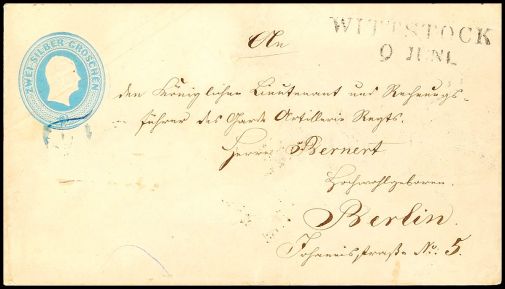 ZWEI SILBER GROSCHEN
WITTSTOCK
9 JUNI.
An
den Königlichen Lieutenant und Rechnungs-
führer des Garde Artillerie Regts.
Herrn Bernert
Hochwohlgeboren.
Berlin.
Johannisstraße No. 5.